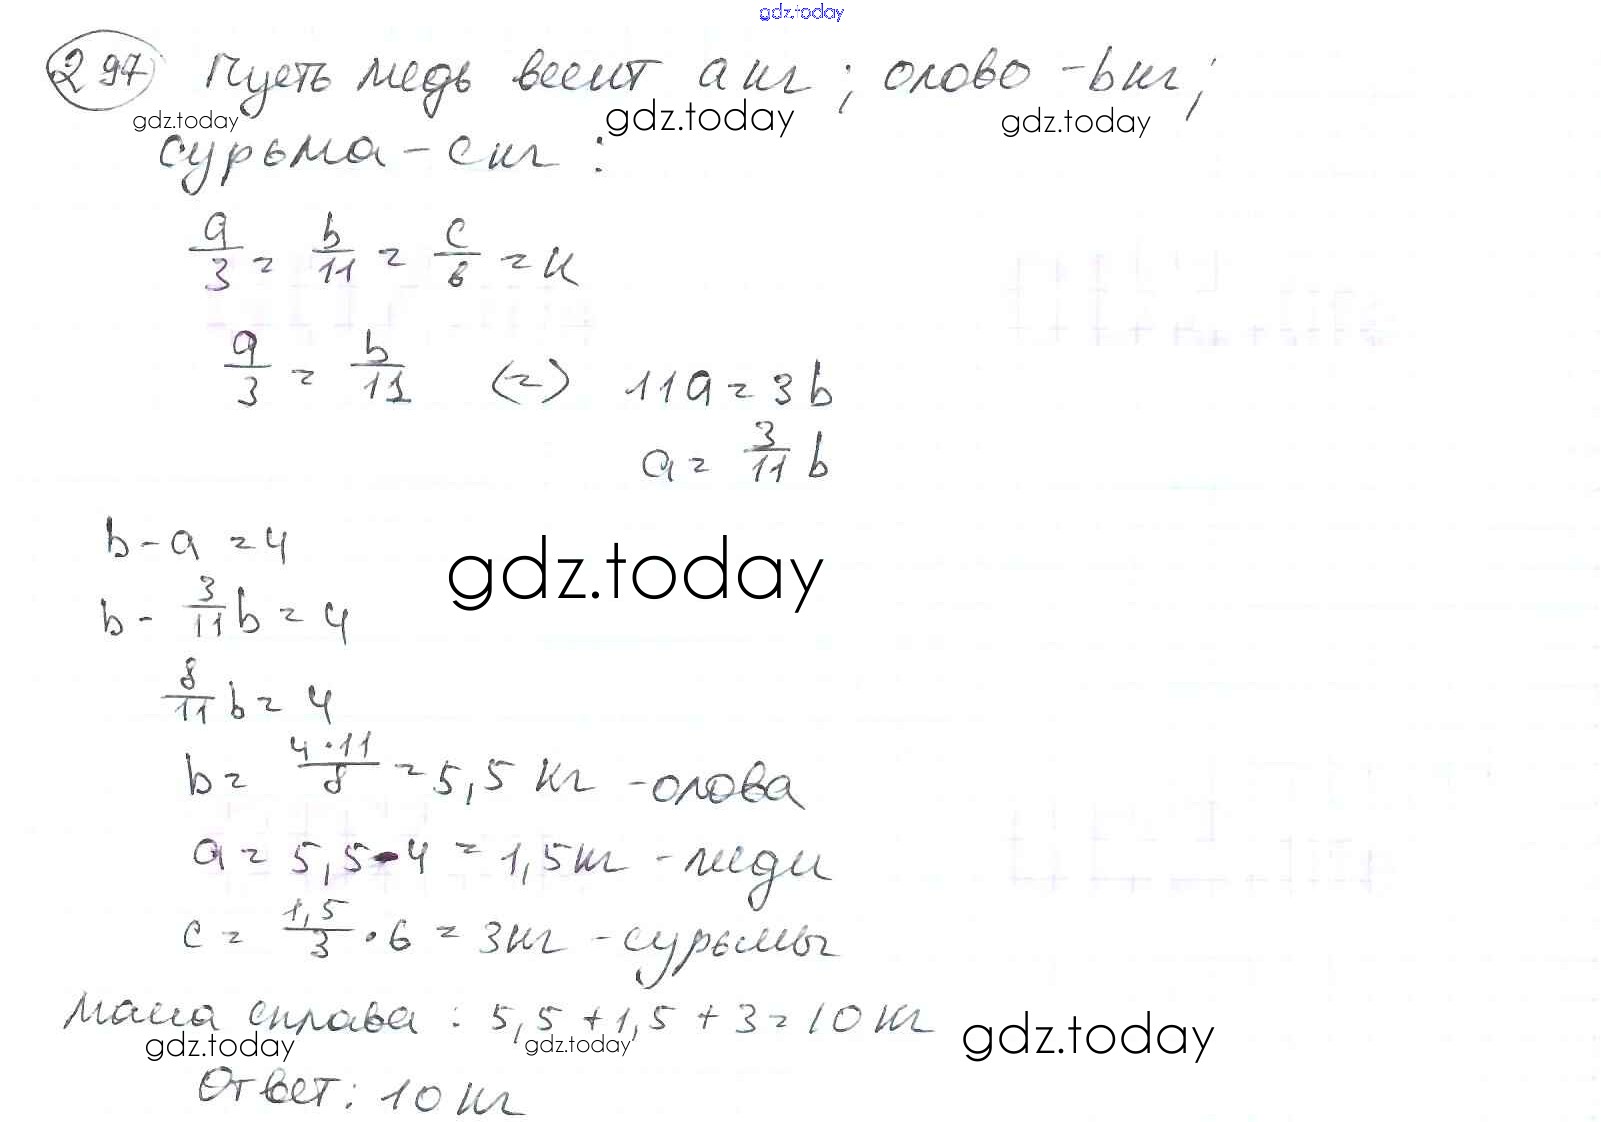 gdz.today
297 Пусть медь весит a кг; олово - b кг;
gdz.today gdz.today gdz.today
сурьма - c кг:
a/3 = b/11 = c/6 = к
a/3 = b/11 <=> 11a = 3b
a = 3/11 b
b - a = 4
gdz.today
b - 3/11 b = 4
8/11 b = 4
b = 4·11/8 = 5,5 кг - олова
a = 5,5 - 4 = 1,5 кг - меди
c = 1,5/3 · 6 = 3 кг - сурьмы
Масса сплава: 5,5 + 1,5 + 3 = 10 кг
gdz.today gdz.today gdz.today
Ответ: 10 кг